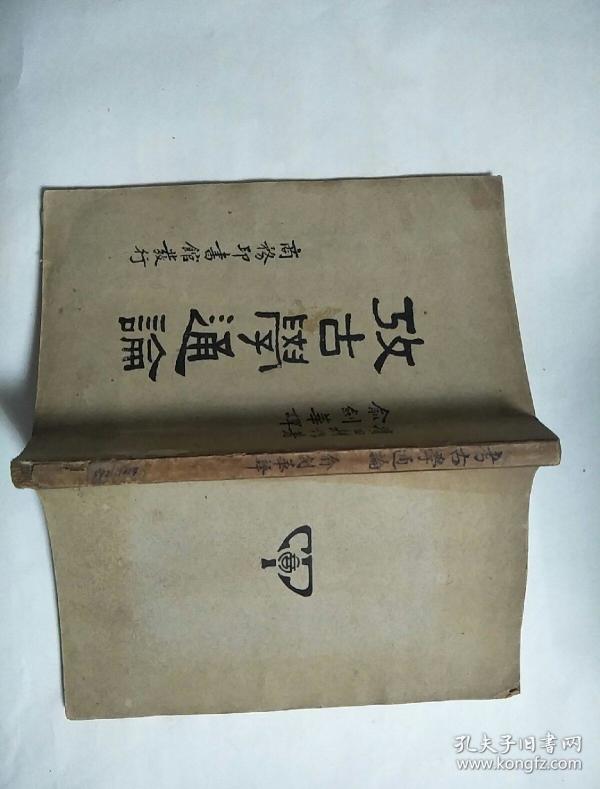 商務印書館發行
攷古學通論
俞劍華譯
考古學通論 俞劍華譯
商
孔夫子旧书网
www.kongfz.com